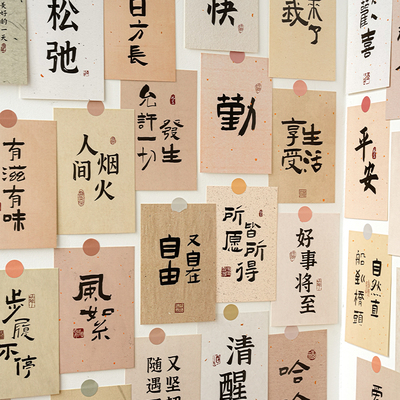 好的一天
松弛
日方長
快
歡喜
允許一切
發生
勤
享受
生活
平安
有滋有味
人间
烟火
所愿
皆所得
自由
又自在
好事将至
船到橋頭
自然直
步履
不停
風絮
清醒
随遇
又坚
哈